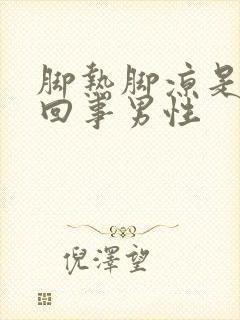 脚热脚凉是
回事男性
倪澤望